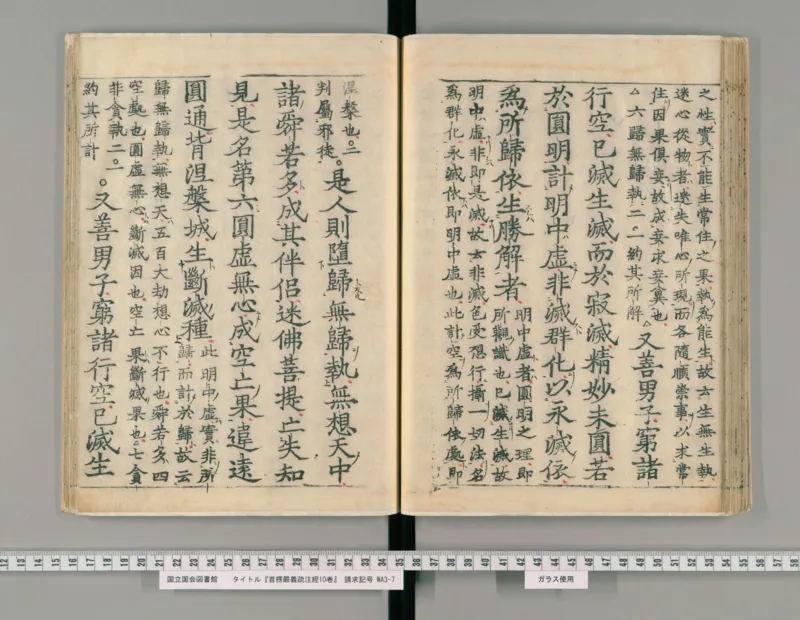 之性實不能生常住之果執為能生故云生無生執
迷心從物者迷失唯心所現而各隨順崇事以求常
住因果俱妄故成妄求妄冀也
△六歸無歸執二一約其所解
△又善男子窮諸
行空已滅生滅而於寂滅精妙未圓若
於圓明計明中虛非滅群化以永滅依
為所歸依生勝解者
明中虛者圓明之理即
所觀識也已滅生滅故
明中虛非即是滅故云非滅色受想行攝一切法名
為群化永滅依即明中虛也此計空為所歸依處即
涅槃也。二
判屬邪徒
。是人則墮歸無歸執無想天中
諸舜若多成其伴侶迷佛菩提亡失知
見是名第六圓虛無心成空亡果違遠
圓通背涅槃城生斷滅種
此明中虛實非所
歸而計於歸故云
歸無歸執無想天五百大劫想心不行也舜若多四
空也圓虛無心斷滅因也空亡果斷滅果也七貪
非貪執二一
約其所計
。又善男子窮諸行空已滅生
国立国会図書館 タイトル『首楞嚴義疏注經10巻』 請求記号 WA3-7
ガラス使用